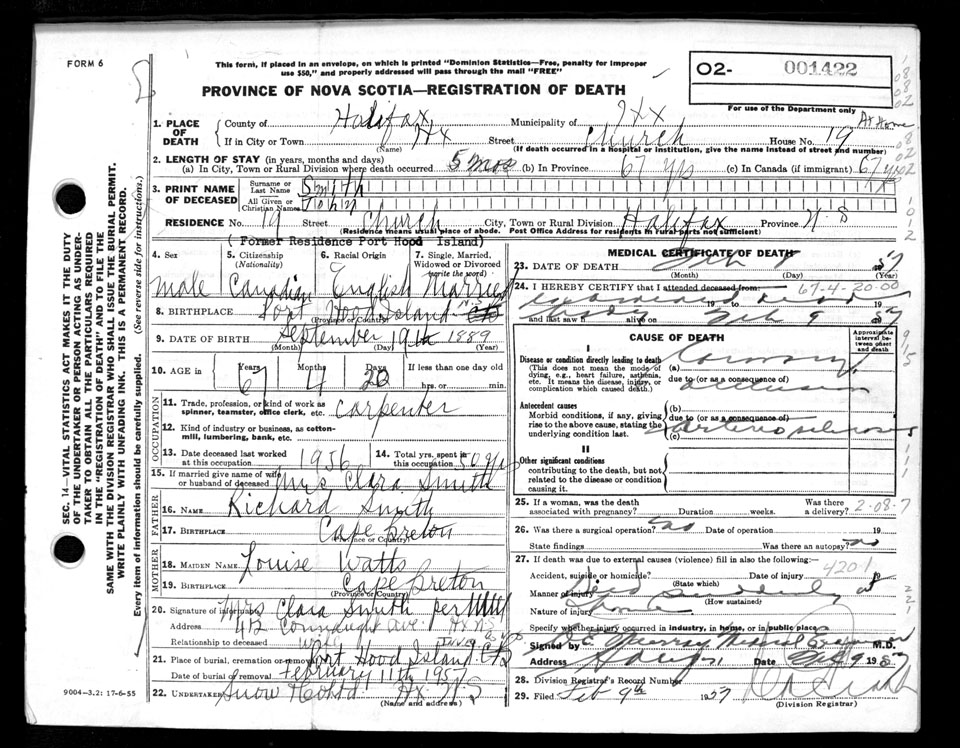 FORM 6
This form, if placed in an envelope, on which is printed "Dominion Statistics—Free, penalty for improper
use $50," and properly addressed will pass through the mail "FREE"
O2- 001422
PROVINCE OF NOVA SCOTIA—REGISTRATION OF DEATH
For use of the Department only
1. PLACE OF DEATH
County of Halifax Municipality of Hx
If in City or Town Hx Street Church House No. 19 At Home
(Name) (If death occurred in a hospital or institution, give the name instead of street and number)
2. LENGTH OF STAY (in years, months and days)
(a) In City, Town or Rural Division where death occurred 5 mos (b) In Province 67 yrs (c) In Canada (if immigrant) 67 yrs
3. PRINT NAME OF DECEASED
Surname or Last Name Smith
All Given or Christian Names John
RESIDENCE No. 19 Street Church City, Town or Rural Division Halifax Province N.S
(Residence means usual place of abode. Post Office Address for residents in rural parts not sufficient)
(Former Residence Port Hood Island)
4. Sex 5. Citizenship (Nationality) 6. Racial Origin 7. Single, Married, Widowed or Divorced (write the word)
male Canadian English Married
8. BIRTHPLACE Port Hood Island N.S
(Province or Country)
9. DATE OF BIRTH September 19th 1889
(Month) (Day) (Year)
10. AGE in Years 67 Months 4 Days 20 If less than one day old
hrs. or min.
OCCUPATION
11. Trade, profession, or kind of work as spinner, teamster, office clerk, etc. Carpenter
12. Kind of industry or business, as cotton-mill, lumbering, bank, etc.
13. Date deceased last worked at this occupation 1956 14. Total yrs. spent in this occupation 50 yrs
15. If married give name of wife or husband of deceased Mrs Clara Smith
FATHER
16. NAME Richard Smith
17. BIRTHPLACE Cape Breton
(Province or Country)
MOTHER
18. MAIDEN NAME Louise Watts
19. BIRTHPLACE Cape Breton
(Province or Country)
20. Signature of informant Mrs Clara Smith per
Address 412 Connaught Ave. Hx N.S.
Relationship to deceased Wife
21. Place of burial, cremation or removal Port Hood Island CB
Date of burial or removal February 11th 1957
22. UNDERTAKER Snow Hx N.S
(Name and address)
MEDICAL CERTIFICATE OF DEATH
23. DATE OF DEATH Feb 8 1957
(Month) (Day) (Year)
24. I HEREBY CERTIFY that I attended deceased from: 67-4-20-00
19 to
and last saw h alive on Feb 9 1957
CAUSE OF DEATH
Approximate interval between onset and death
I
Disease or condition directly leading to death
(This does not mean the mode of dying, e.g., heart failure, asthenia, etc. It means the disease, injury, or complication which caused death.)
(a) Coronary
due to (or as a consequence of) occlusion
Antecedent causes
Morbid conditions, if any, giving rise to the above cause, stating the underlying condition last.
(b)
due to (or as a consequence of)
(c) Arteriosclerosis
II
Other significant conditions
contributing to the death, but not related to the disease or condition causing it.
25. If a woman, was the death associated with pregnancy? Duration weeks. Was there a delivery? 2-08-7
26. Was there a surgical operation? no Date of operation 19
State findings Was there an autopsy? no
27. If death was due to external causes (violence) fill in also the following:—
4201
Accident, suicide or homicide? Date of injury 19
(State which)
Manner of injury Died suddenly at
(How sustained)
Nature of injury home
Injury occurred in industry, in home, or in public place
Signed by D.E. Murray Medical Examiner M.D.
Address Halifax Date Feb 9 1957
28. Division Registrar's Record Number
29. Filed Feb 9th 1957
(Division Registrar)
9004-3.2: 17-6-55
SEC. 14—VITAL STATISTICS ACT MAKES IT THE DUTY
OF THE UNDERTAKER OR PERSON ACTING AS UNDER-
TAKER TO OBTAIN ALL THE PARTICULARS REQUIRED
IN THE "REGISTRATION OF DEATH" AND TO FILE THE
SAME WITH THE DIVISION REGISTRAR WHO SHALL ISSUE THE BURIAL PERMIT.
WRITE PLAINLY WITH UNFADING INK. THIS IS A PERMANENT RECORD.
Every item of information should be carefully supplied. (See reverse side for instructions.)